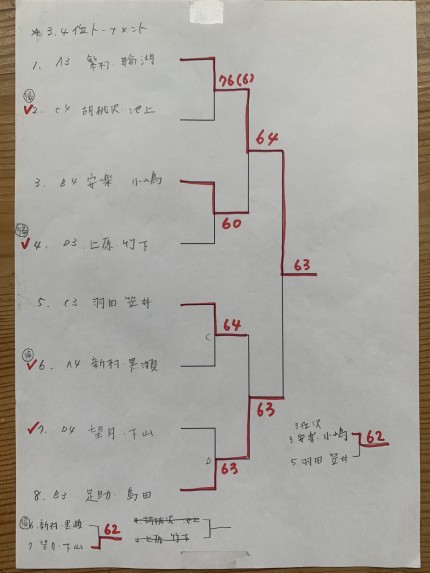 3.4位トーナメント
1. A3 繁村・輪湖
76(6)
✓2. C4 胡桃沢・池上
64
3. B4 安楽・小嶋
60
✓4. D3 上原・竹下
63
5. C3 羽田 笠井
64
C
✓6. A4 新村 黒瀬
63
✓7. D4 望月・下山
D
63
8. B3 足助・島田
3位決
3 安楽・小嶋
62
5. 羽田 笠井
6. 新村・黒瀬
62
7. 望月・下山
2. 胡桃沢 池上
4. 上原 竹下